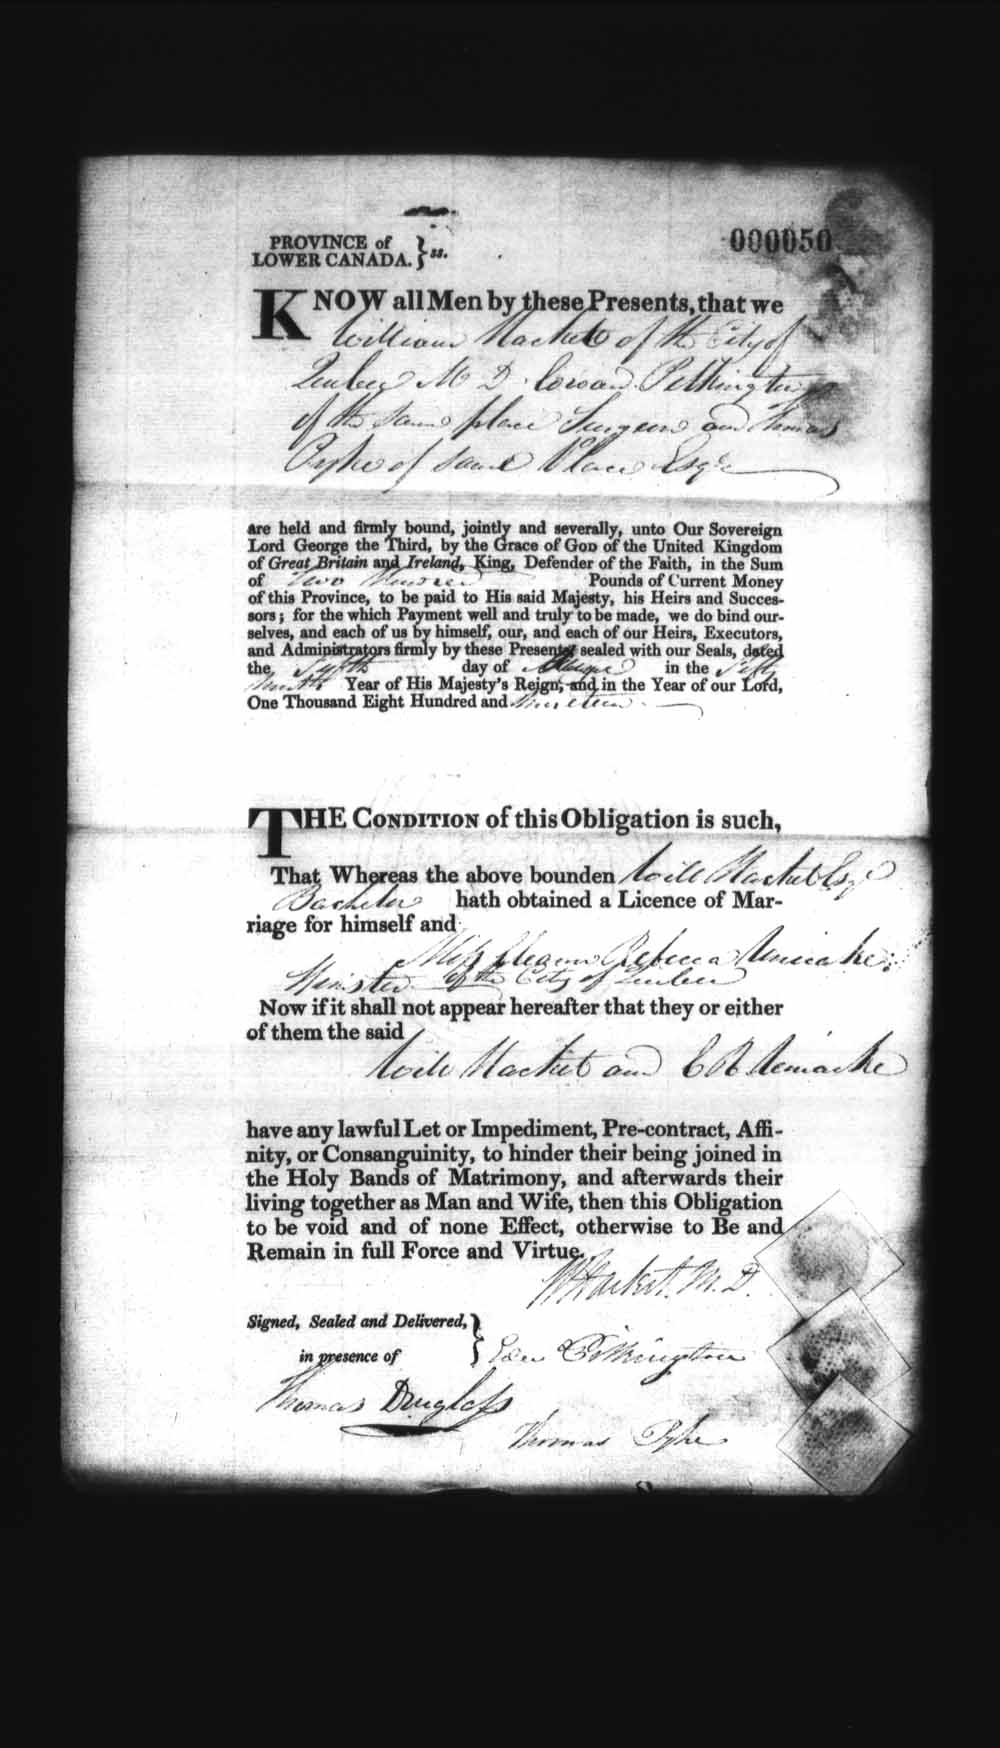 PROVINCE of
LOWER CANADA. } ss.
000050
KNOW all Men by these Presents, that we
William Hacket of the City of
Quebec M D Edward Pilkington
of the same place Surgeon and Thomas
Pyke of same Place Esqr
are held and firmly bound, jointly and severally, unto Our Sovereign
Lord George the Third, by the Grace of GOD of the United Kingdom
of Great Britain and Ireland, King, Defender of the Faith, in the Sum
of Two Hundred Pounds of Current Money
of this Province, to be paid to His said Majesty, his Heirs and Succes-
sors; for the which Payment well and truly to be made, we do bind our-
selves, and each of us by himself, our, and each of our Heirs, Executors,
and Administrators firmly by these Presents, sealed with our Seals, dated
the day of in the Fifty
Ninth Year of His Majesty's Reign, and in the Year of our Lord,
One Thousand Eight Hundred and Nineteen
THE CONDITION of this Obligation is such,
That Whereas the above bounden Will Hacket Esqr
Bachelor hath obtained a Licence of Mar-
riage for himself and
Miss Rebecca Uniacke
Spinster of the City of Quebec
Now if it shall not appear hereafter that they or either
of them the said
Will Hacket and Uniacke
have any lawful Let or Impediment, Pre-contract, Affi-
nity, or Consanguinity, to hinder their being joined in
the Holy Bands of Matrimony, and afterwards their
living together as Man and Wife, then this Obligation
to be void and of none Effect, otherwise to Be and
Remain in full Force and Virtue.
W Hacket. M. D.
Signed, Sealed and Delivered,
in presence of }
Edw Pilkington
Thomas Douglass
Thomas Pyke